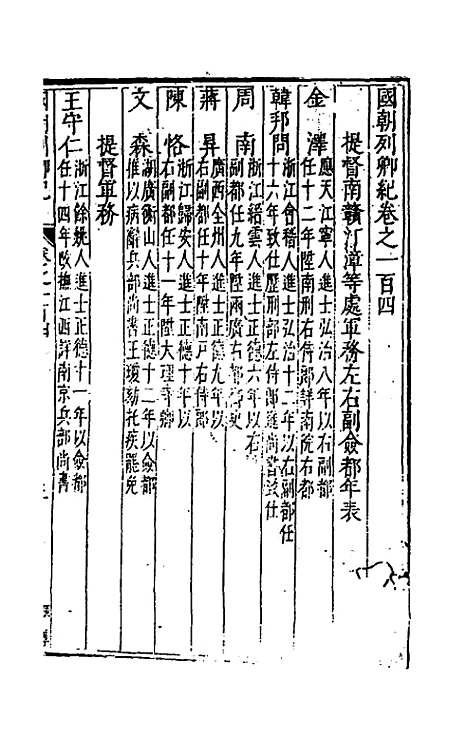 國朝列卿紀卷之一百四
提督南贛汀漳等處軍務左右副僉都年表
金澤
應天江寧人進士弘治八年以右副都
任十二年陞南刑右侍郎詳南院右都
韓邦問
浙江會稽人進士弘治十二年以右副都任
十六年致仕歷刑部左侍郎進尚書致仕
周南
浙江縉雲人進士正德六年以右
副都任九年陞兩廣右都御史
蔣昇
廣西全州人進士正德九年以
右副都任十年陞南戶右侍郎
陳恪
浙江歸安人進士正德十年以
右副都任十一年陞大理寺卿
文森
湖廣衡山人進士正德十二年以僉都
推以病辭兵部尚書王瓊劾托疾罷免
提督軍務
王守仁
浙江餘姚人進士正德十一年以僉都
任十四年改撫江西詳南京兵部尚書